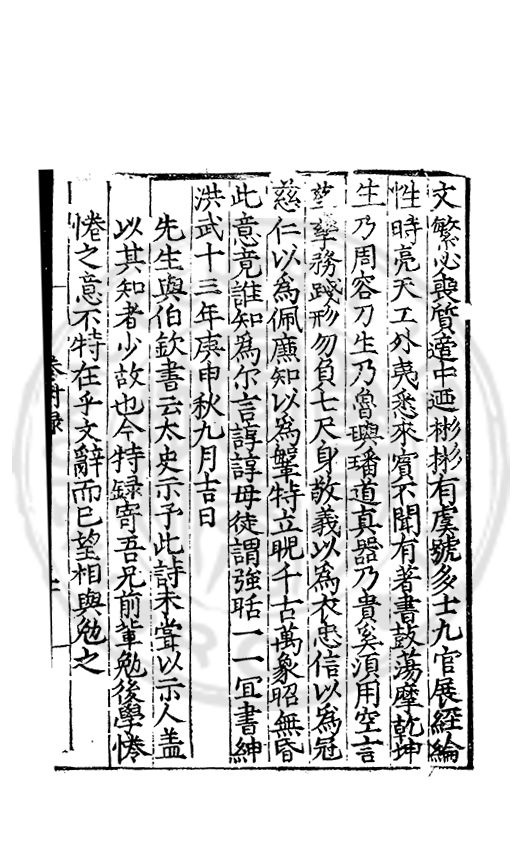 文繁必喪質適中迺彬彬有虞號多士九官展經綸
性時亮天工外夷悉來賓不聞有著書鼓蕩摩乾坤
生乃周容刀生乃魯璵璠道真器乃貴奚須用空言
孳孳務踐形勿負七尺身敬義以為衣忠信以為冠
慈仁以為佩廉知以為鞶特立睨千古萬象昭無昏
此意竟誰知為尔言諄諄毋徒謂強聒一一宜書紳
洪武十三年庚申秋九月吉日
先生與伯欽書云太史示予此詩未甞以示人盖
以其知者少故也今特録寄吾兄前輩勉後學惓
惓之意不特在乎文辭而已望相與勉之